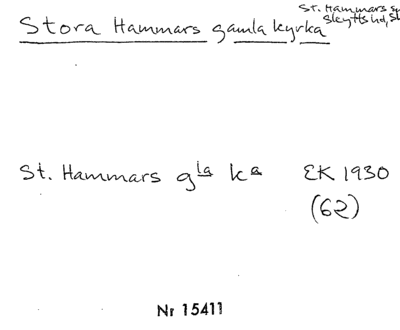 Stora Hammars gamla kyrka
St. Hammars
St. Hammars gla ka EK 1930
(62)
Nr 15411